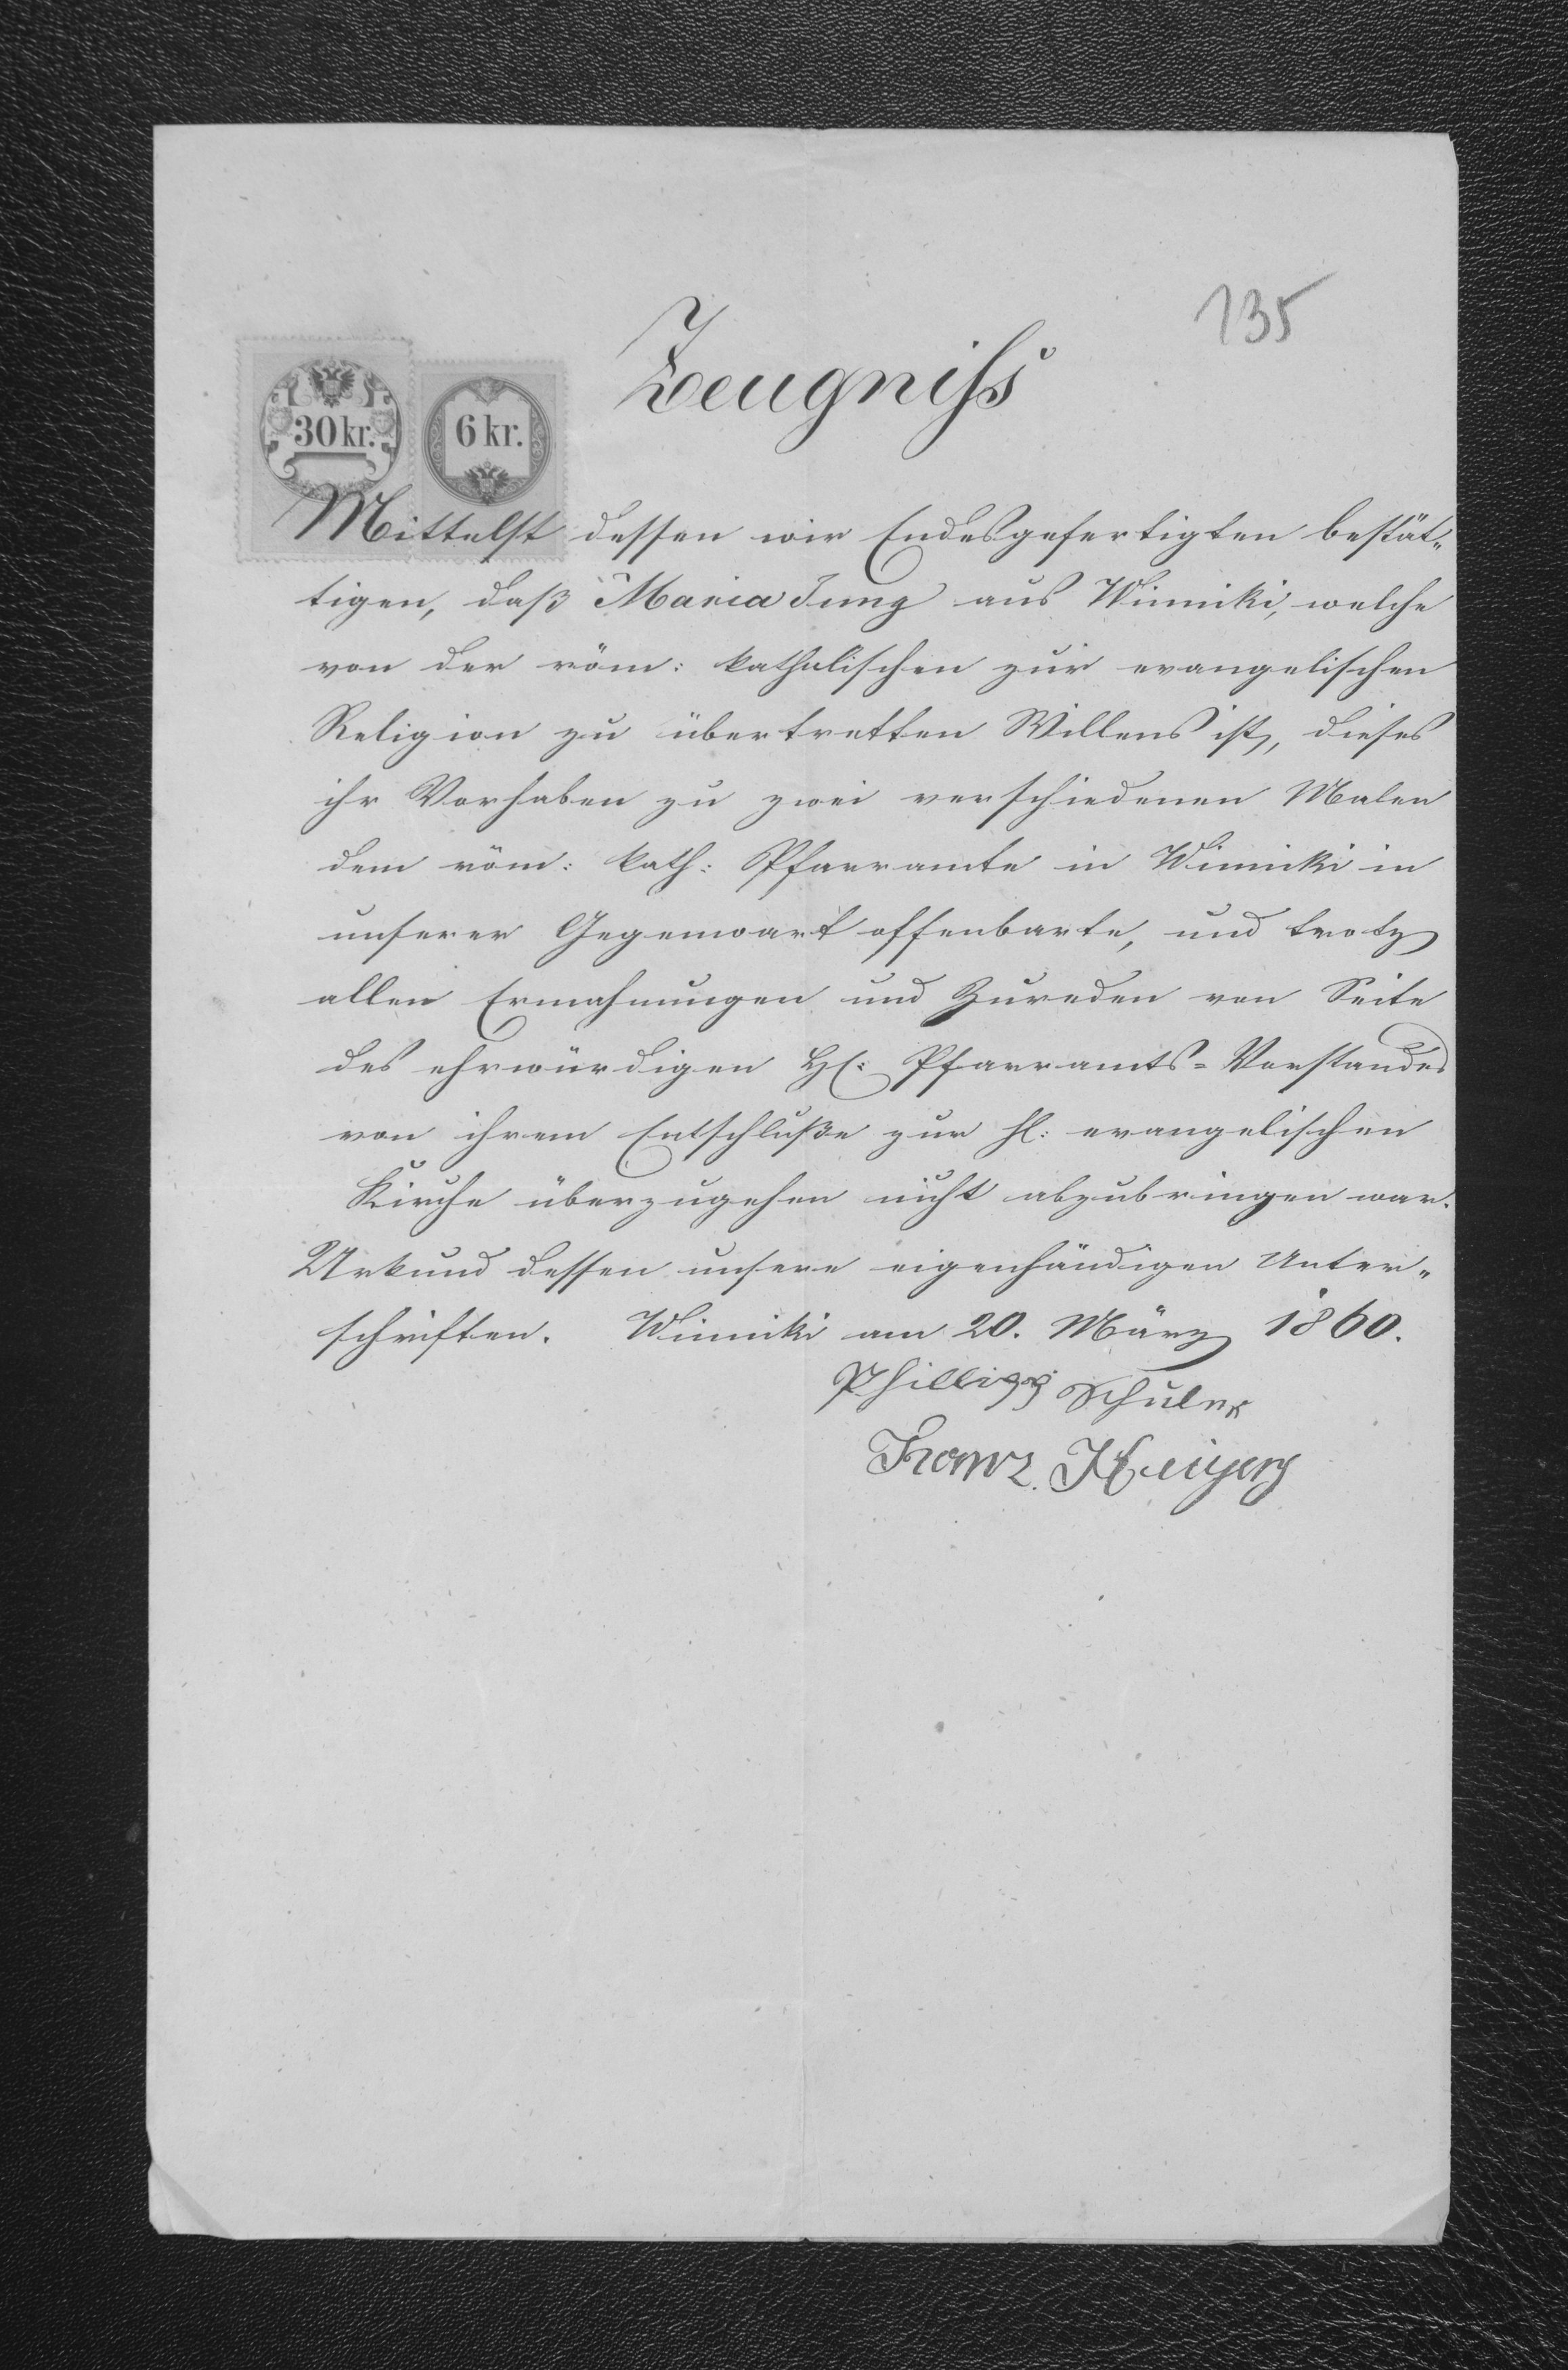 135
Zeugniss
30 kr.
6 kr.
Mittelst dessen wir Endesgefertigten bestät„
tigen, daß Maria Jung aus Winniki, welche
von der röm: katholischen zur evangelischen
Religion zu übertretten Willens ist, dieses
ihr Vorhaben zu zwei verschiedenen Malen
dem röm: kath: Pfarramte in Winniki in
unserer Gegenwart offenbarte, und trotz
allen Ermahnungen und Zureden von Seite
des ehrwürdigen H: Pfarramts=Vorstandes
von ihrem Entschluße zur hl: evangelischen
Kirche überzugehen nicht abzubringen war.
Urkund dessen unsere eigenhändigen Unter„
schriften. Winniki am 20. März 1860.
Phillipp Schuler
Franz